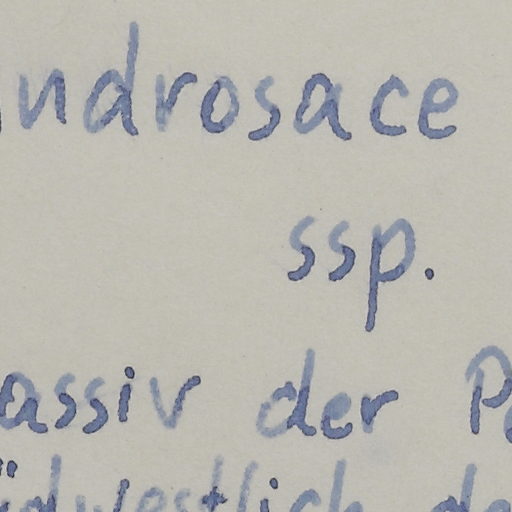 ndrosace
ssp.
assiv der P
üdwestlich de